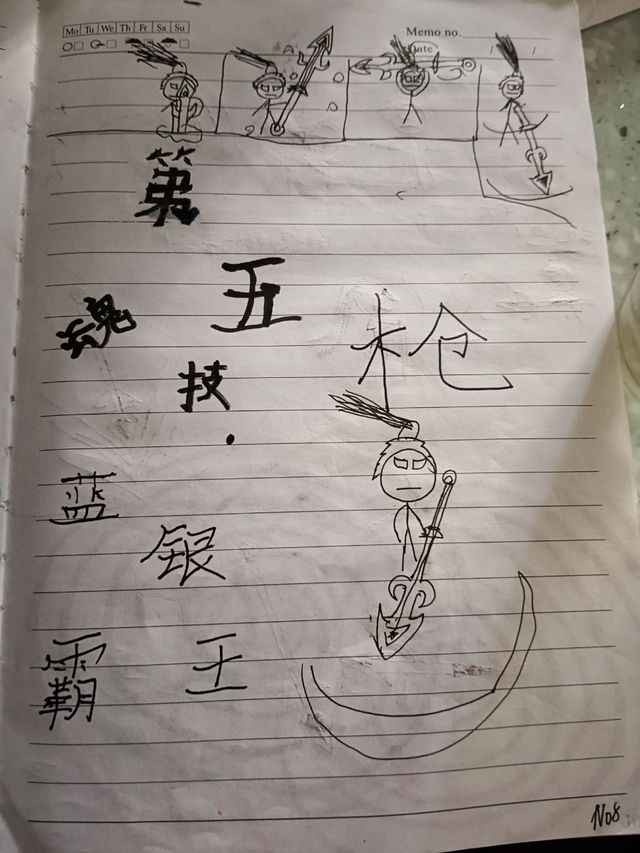 Mo Tu We Th Fr Sa Su
Memo no.
Date
第
五
魂
技
.
蓝
银
霸 王
枪
No8